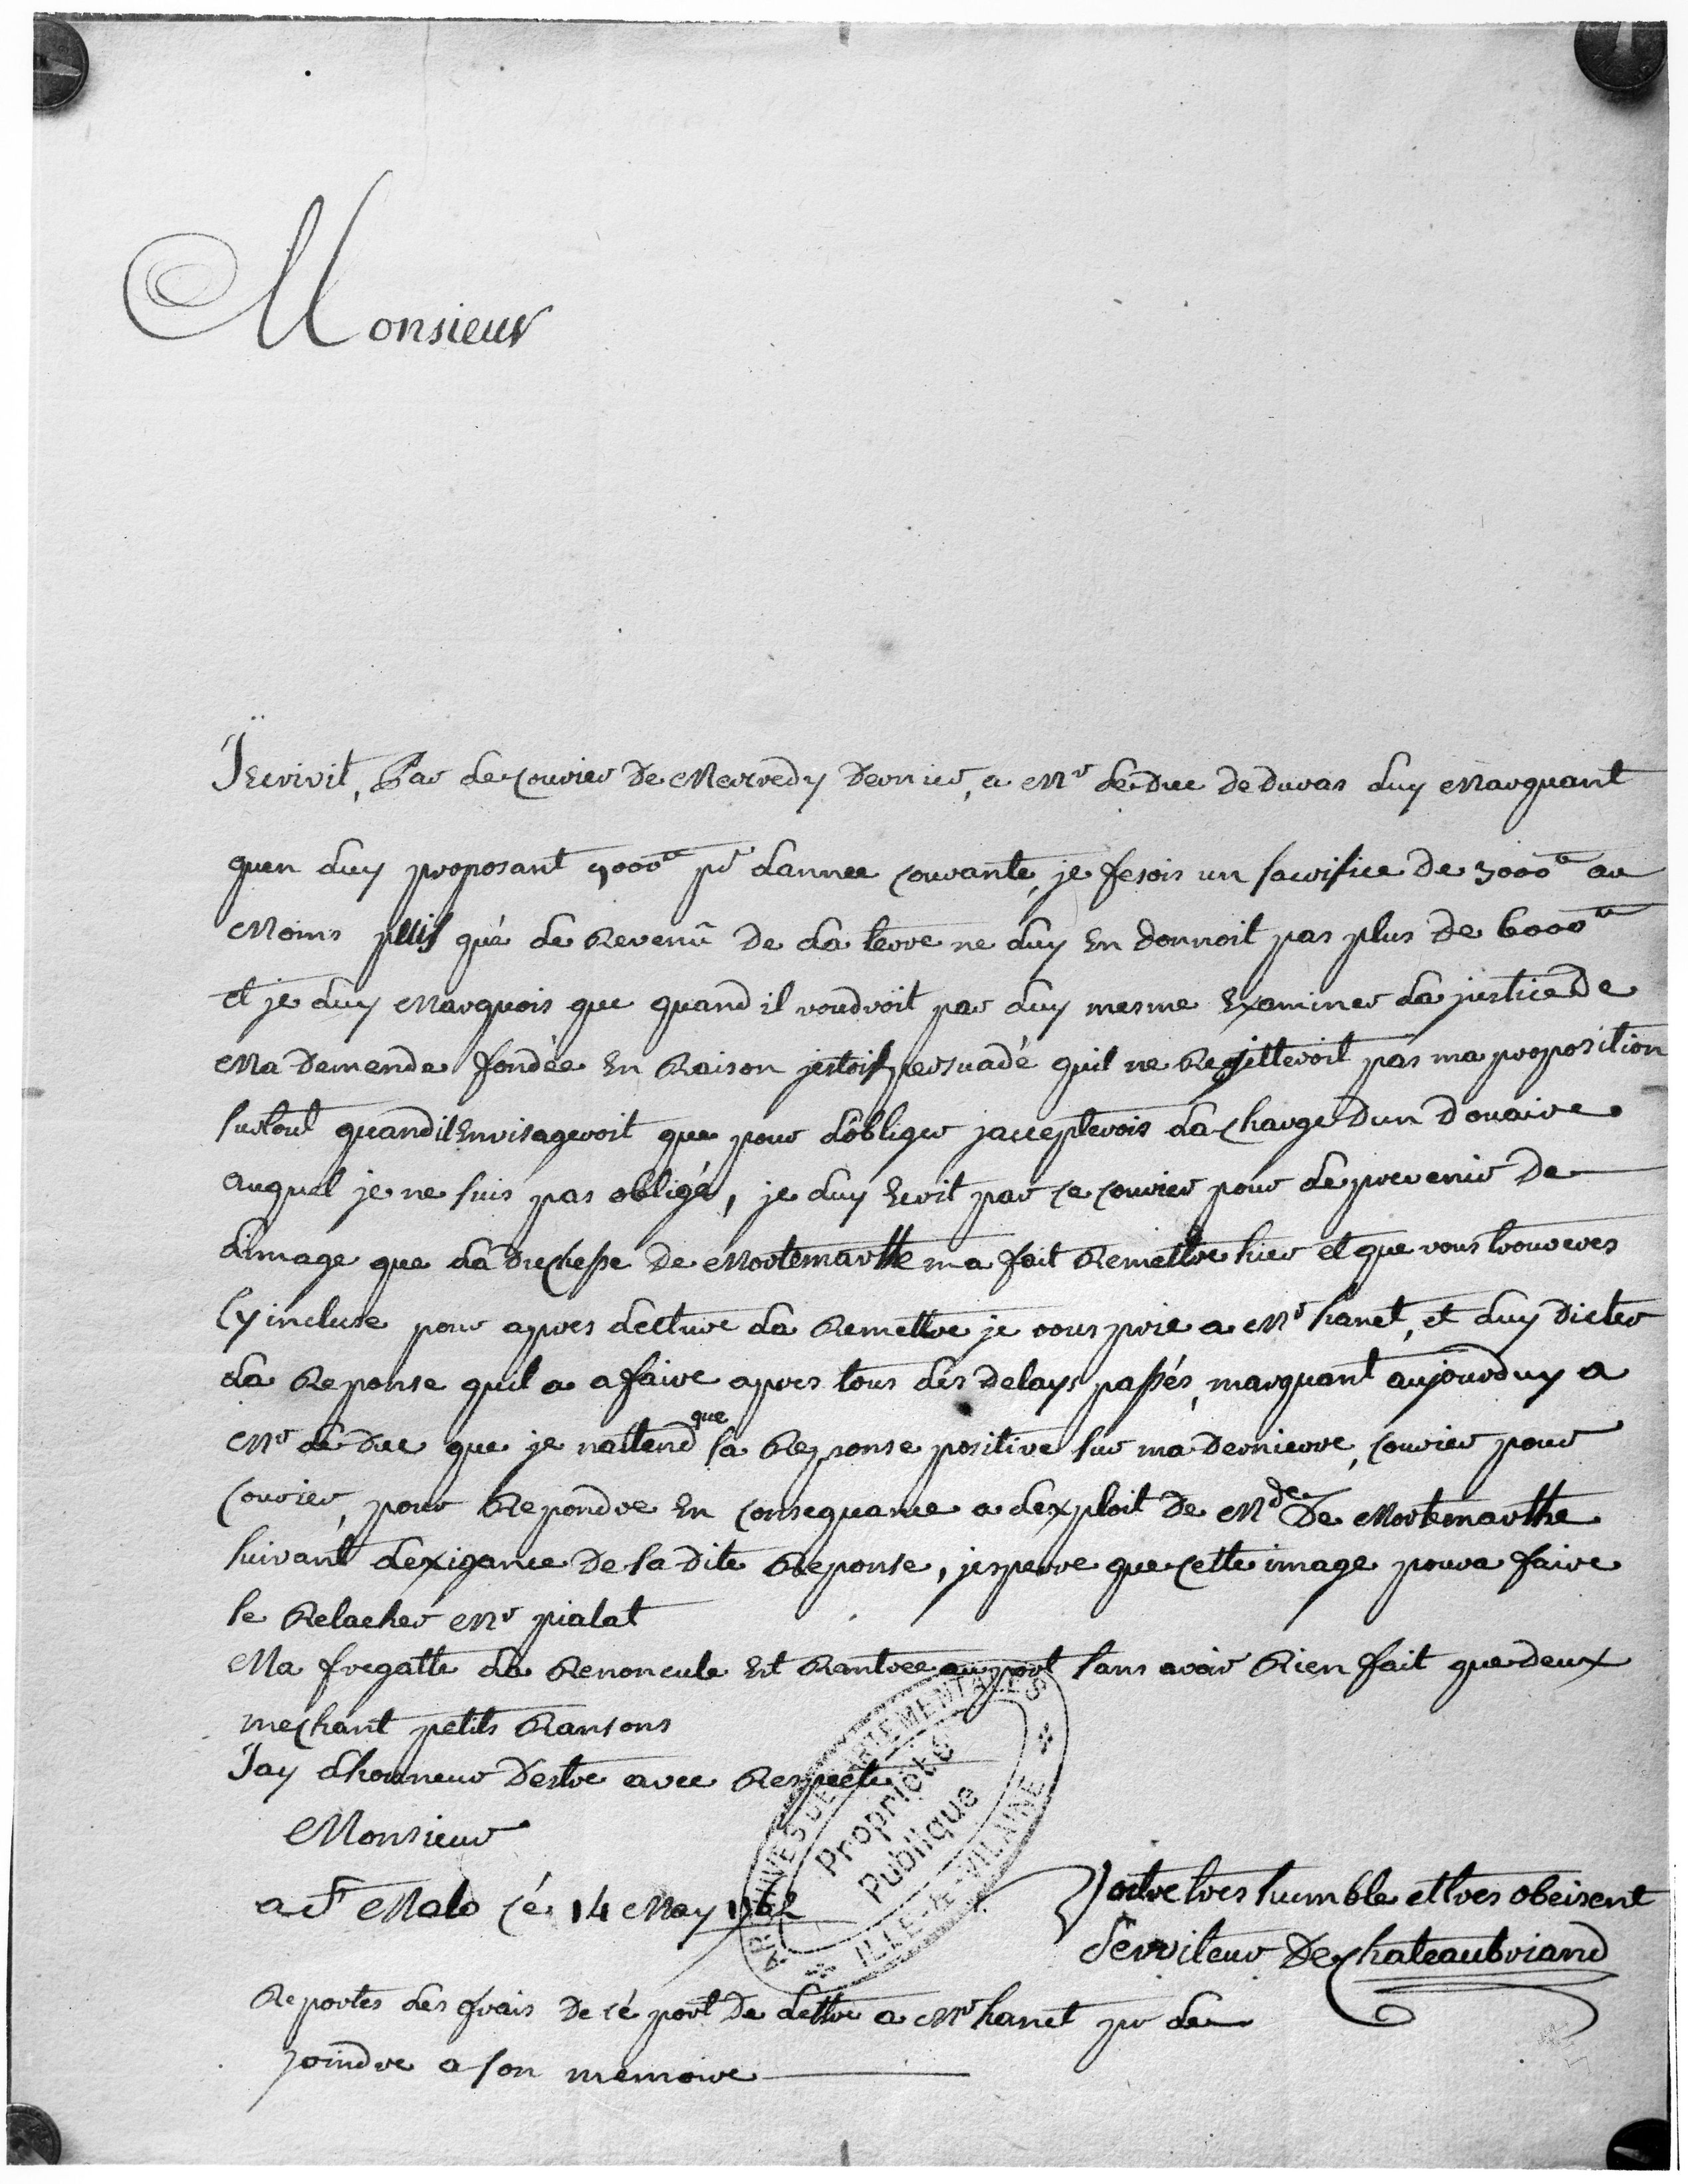 Monsieur
Jecrivit, Par le couvier de Mecredy dernier, a Mr le Duc de Duras luy Marquant
quen luy proposant 9000tt pr lannee courante, je fesois un sacrifice de 3000tt au
Moins puis qué le Revenû de la terre ne luy En donnoit pas plus de 6000tt
et je luy Marquois que quand il voudroit par luy mesme Examiner la justice de
Ma demende fondée En Raison jestois persuadé quil ne Regitteroit pas ma proposition
surtout quand il Envisageroit que pour lobliger jaccepterois la charge dun douaire
auquel je ne suis pas obligé, je luy Ecrit par ce couvier pour le prevenir de
limage que la duchesse de Mortemartte ma fait Remettre hier et que vous trouveres
Cy incluse pour apres lecture la Remettre je vous prie a Mr hanet, et luy dicter
la Reponse quil a a faire apres tous les delays passés, marquant aujourduy a
Mr le Duc que je nattend que sa Reponse positive sur ma dernierre, couvier pour
couvier, pour Repondre En consequance a lexploit de Mde De Mortemarthe
suivant lexigance de sa dite Reponse, jesperre que cette image poura faire
se Relacher Mr pialat
Ma fregatte la Renoncule Est Rantree au port sans avoir Rien fait que deux
mechant petits Ransons
Jay lhonneur destre avec Respecte
Monsieur
a St Malo cé 14 May 1762
Votre tres humble et tres obeisent
serviteur De Chateaubriand
Reportes les frais de cé port de lettre a Mr hanet pr le
joindre a son memoire
ARCHIVES DEPARTEMENTALES
Propriété
Publique
ILLE-&-VILAINE